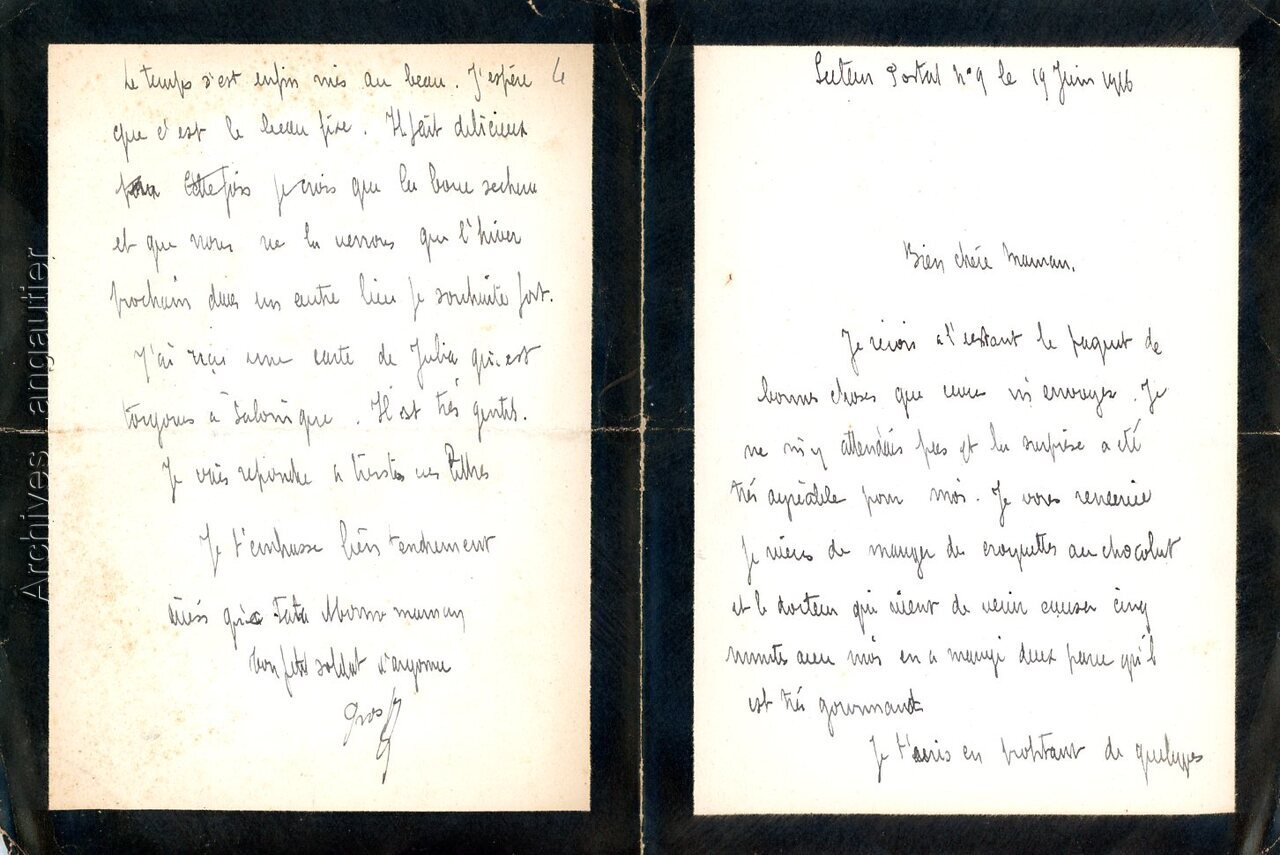 Secteur Postal N°9 le 19 Juin 1916
Bien chère Maman.
Je reçois à l'instant le paquet de
bonnes choses que vous m'envoyez. Je
ne m'y attendais pas et la surprise a été
très agréable pour moi. Je vous remercie
Je viens de manger des croquettes au chocolat
et le docteur qui vient de venir causer cinq
minutes avec moi en a mangé deux parce qu'il
est très gourmand
Je t'écris en profitant de quelques
4
Le temps s'est enfin mis au beau. J'espère
que c'est le beau fixe. Il fait délicieux
cette fois je crois que la boue sechera
et que nous ne la verrons que l'hiver
prochain dans un autre lieu je souhaite fort.
J'ai reçu une carte de Julia qui est
toujours à Salonique. Il est très gentil.
Je vais repondre à toutes ces lettres
Je t'embrasse bien tendrement
ainsi que Tata Bonne maman
ton petit soldat d'argonne
Gros
Archives Langautier